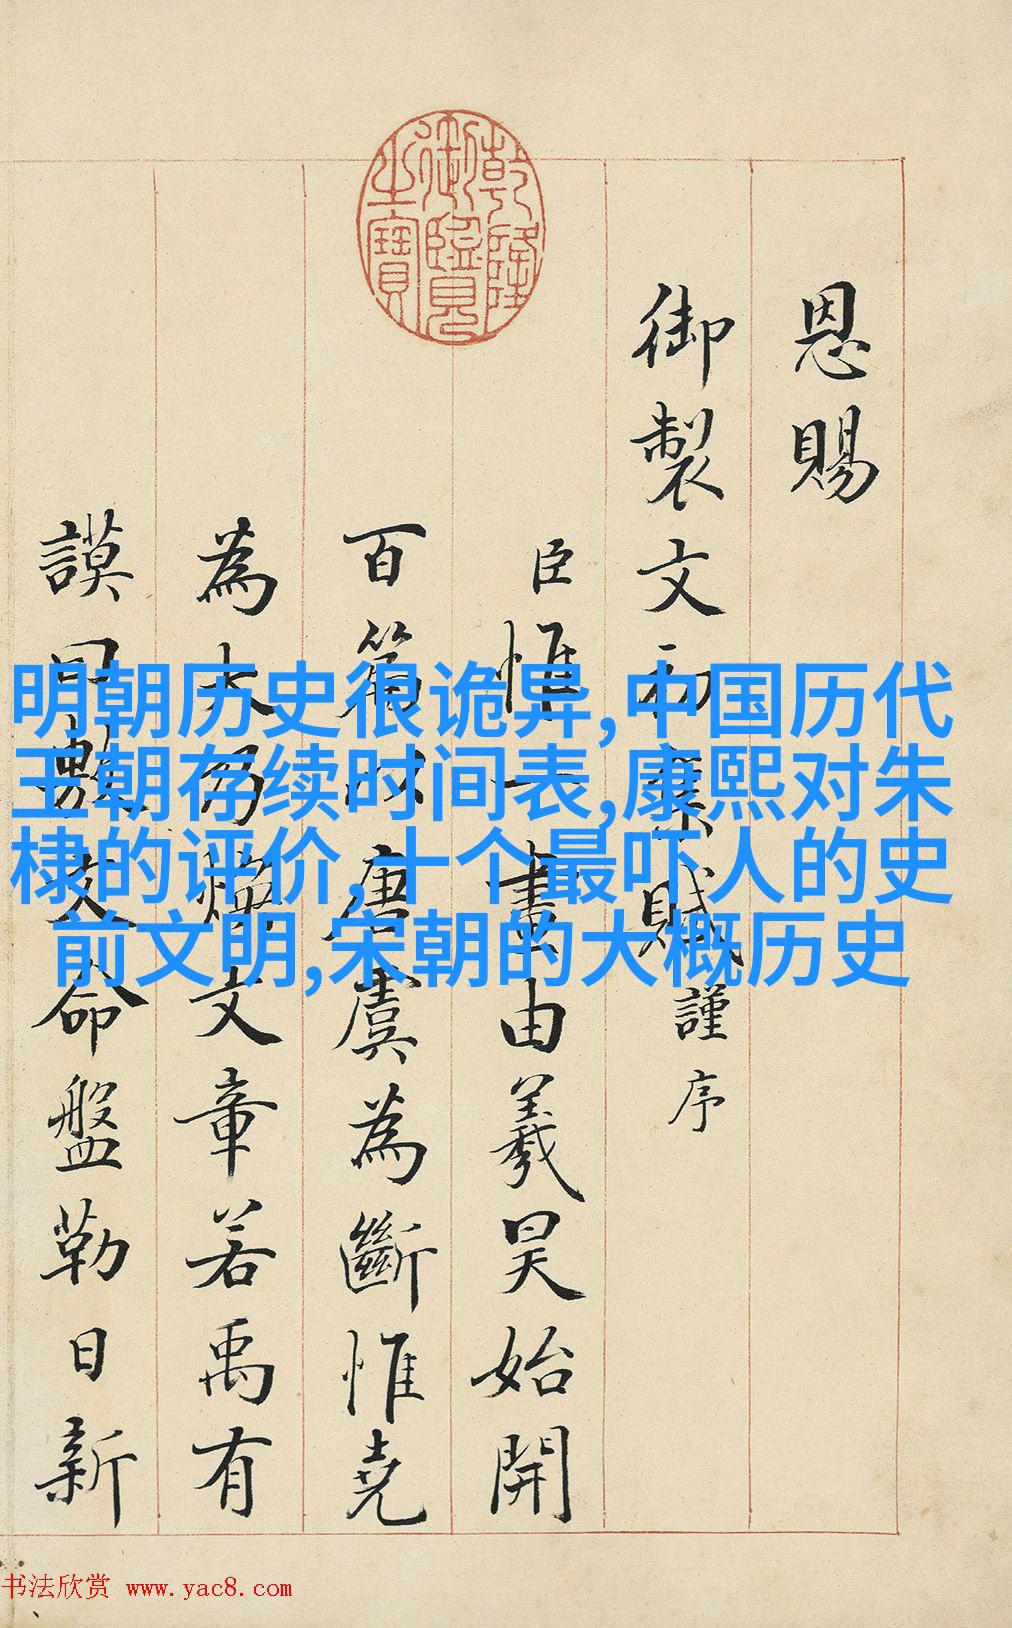 恩賜
御製文初集謹序
臣惟一畫由羲昊始開
百篇以唐虞為斷惟堯
為大乃煥文章若禹有
謨曰敷文命盤勒日新
乾隆御覽之寶
明朝历史很诡异,中国历代
王朝存续时间表,康熙对朱
棣的评价,十个最吓人的史
前文明,宋朝的大概历史
书法欣赏 www.yac8.com